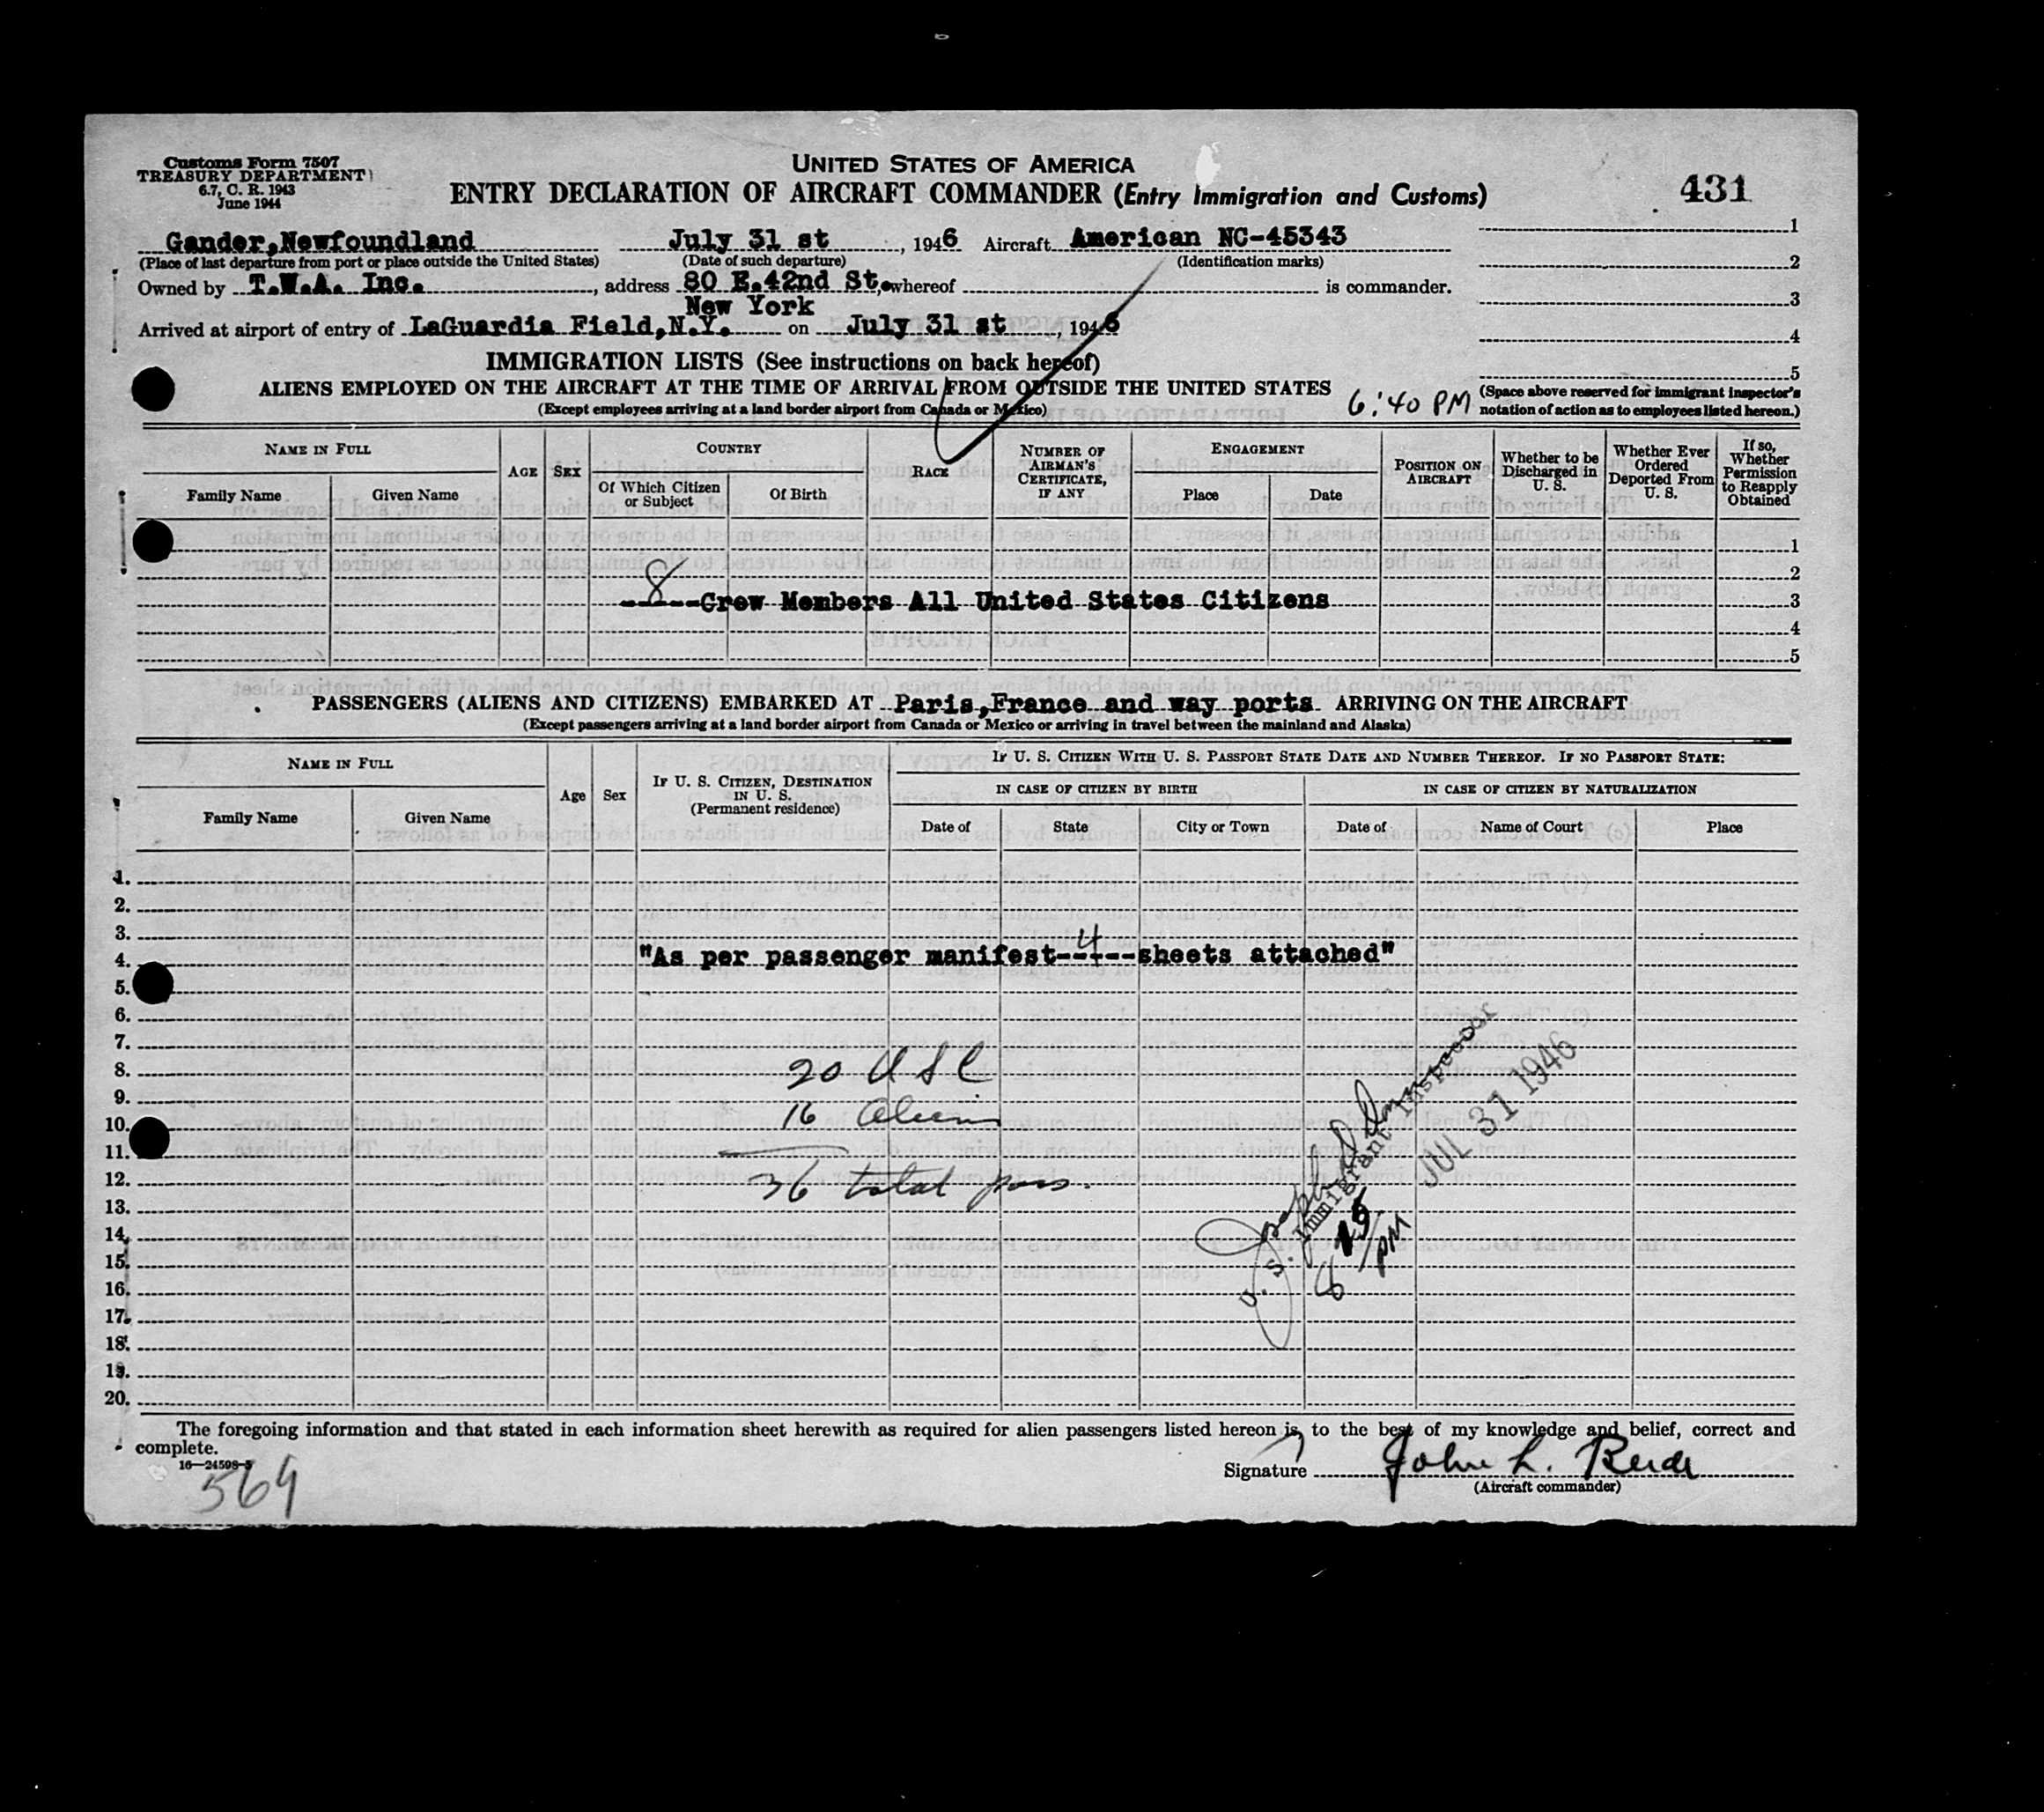 Customs Form 7507
TREASURY DEPARTMENT
6.7, C. R. 1943
June 1944
UNITED STATES OF AMERICA
ENTRY DECLARATION OF AIRCRAFT COMMANDER (Entry Immigration and Customs)
431
Gander,Newfoundland July 31 st, 1946 Aircraft American NC-45343
(Place of last departure from port or place outside the United States) (Date of such departure) (Identification marks)
Owned by T.W.A. Inc., address 80 E.42nd St. whereof is commander.
New York
Arrived at airport of entry of LaGuardia Field,N.Y. on July 31 st, 1946
1
2
3
4
5
IMMIGRATION LISTS (See instructions on back hereof)
ALIENS EMPLOYED ON THE AIRCRAFT AT THE TIME OF ARRIVAL FROM OUTSIDE THE UNITED STATES
(Except employees arriving at a land border airport from Canada or Mexico)
6:40 PM
(Space above reserved for immigrant inspector's
notation of action as to employees listed hereon.)
NAME IN FULL
Family Name
Given Name
AGE
SEX
COUNTRY
Of Which Citizen
or Subject
Of Birth
RACE
NUMBER OF
AIRMAN'S
CERTIFICATE,
IF ANY
ENGAGEMENT
Place
Date
POSITION ON
AIRCRAFT
Whether to be
Discharged in
U. S.
Whether Ever
Ordered
Deported From
U. S.
If so,
Whether
Permission
to Reapply
Obtained
1
2
8 Crew Members All United States Citizens
3
4
5
PASSENGERS (ALIENS AND CITIZENS) EMBARKED AT Paris,France and way ports ARRIVING ON THE AIRCRAFT
(Except passengers arriving at a land border airport from Canada or Mexico or arriving in travel between the mainland and Alaska)
NAME IN FULL
Family Name
Given Name
Age
Sex
IF U. S. CITIZEN, DESTINATION
IN U. S.
(Permanent residence)
IF U. S. CITIZEN WITH U. S. PASSPORT STATE DATE AND NUMBER THEREOF. IF NO PASSPORT STATE:
IN CASE OF CITIZEN BY BIRTH
Date of
State
City or Town
IN CASE OF CITIZEN BY NATURALIZATION
Date of
Name of Court
Place
1.
2.
3.
4. "As per passenger manifest--4--sheets attached"
5.
6.
7.
8. 20 USC
9.
10. 16 Aliens
11.
12. 36 total pass.
13.
14.
15.
16.
17.
18.
19.
20.
Joseph
U. S. Immigrant Inspector
JUL 31 1946
8 45 PM
The foregoing information and that stated in each information sheet herewith as required for alien passengers listed hereon is, to the best of my knowledge and belief, correct and
complete.
16—24598-5
564
Signature John L.
(Aircraft commander)